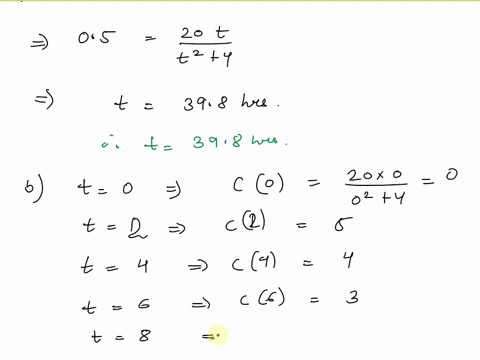 ⇒ 0.5 = 20 t / t² + 4
⇒ t = 39.8 hrs.
∴ t = 39.8 hrs.
b) t = 0 ⇒ C(0) = 20 × 0 / 0² + 4 = 0
t = 2 ⇒ C(2) = 5
t = 4 ⇒ C(4) = 4
t = 6 ⇒ C(6) = 3
t = 8 =